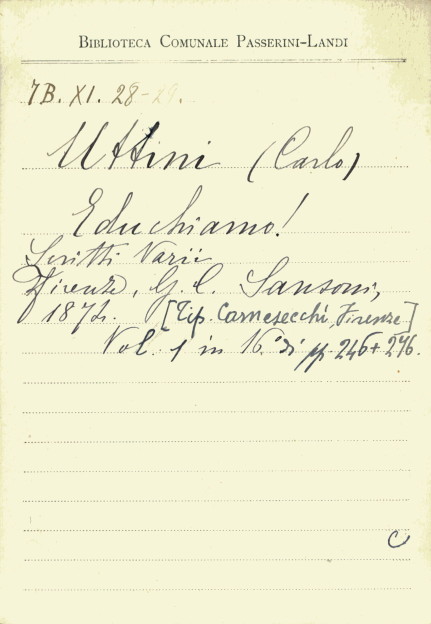 BIBLIOTECA COMUNALE PASSERINI-LANDI
7B. XI. 28-29.
Uttini (Carlo)
Educhiamo!
Scritti Varii
Firenze, G. C. Sansoni,
187 . [Tip. Carnesecchi, Firenze]
Vol. 1 in 16.° di pp. 246 + 246.
C